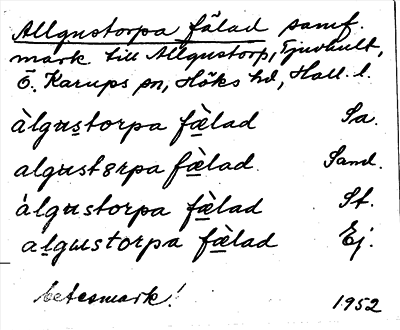 Allgustorpa fälad samf.
mark till Allgustorp, Tjuvhult,
Ö. Karups sn, Höks hd, Hall. l.
àlgustorpa fæ̀lad Sa.
algustərpa fæ̀lad Sand.
àlgustorpa fæ̀lad St.
algustorpa fæ̀lad Ej.
betesmark!
1952